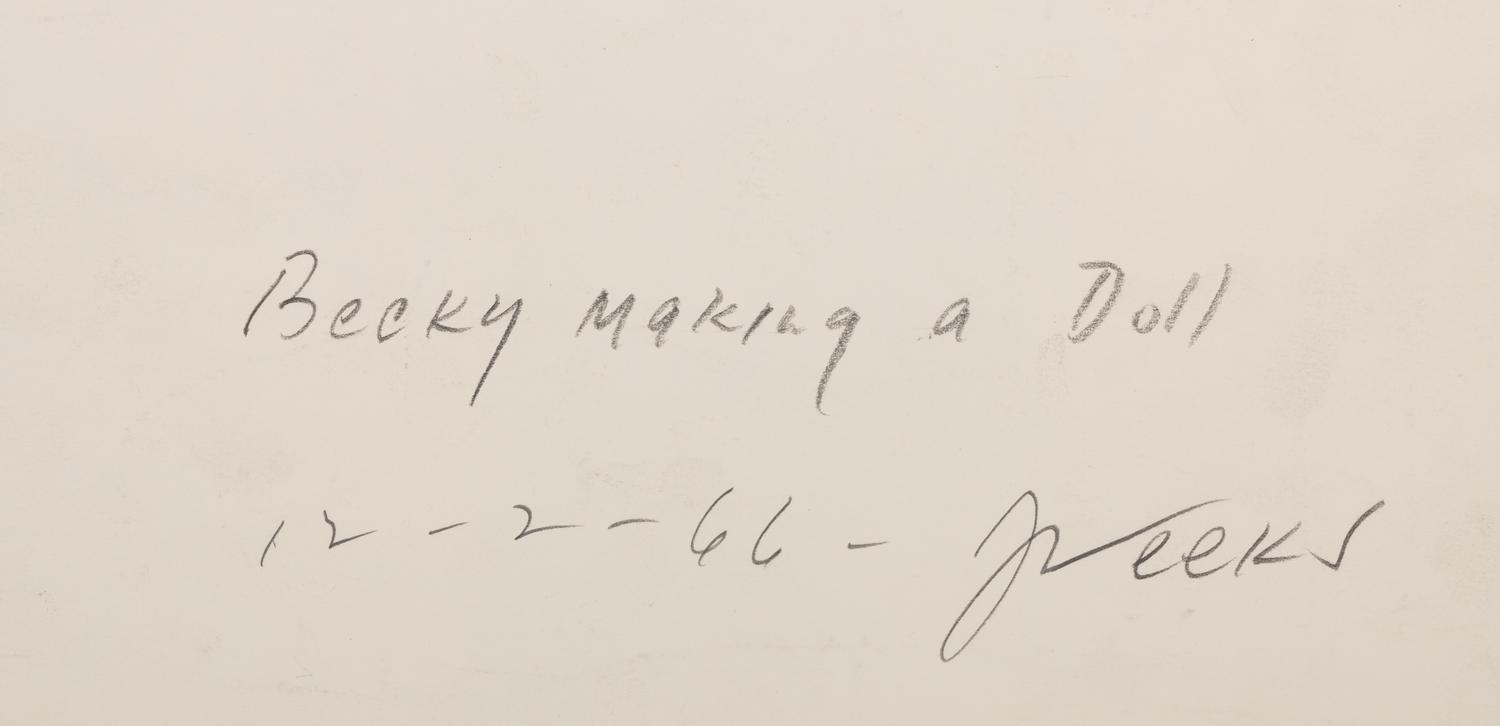 Becky making a Doll
12-2-66- JWeeks